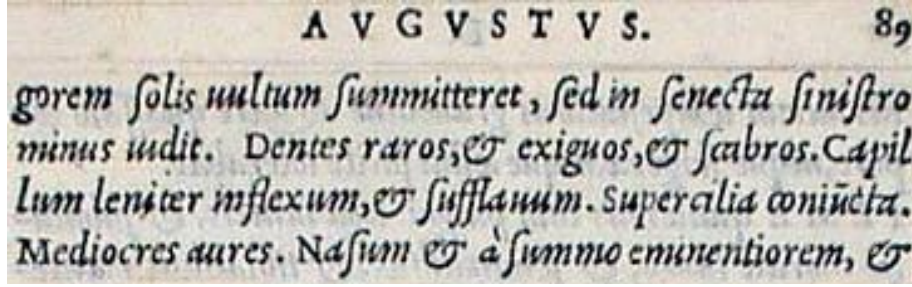 AVGVSTVS. 89
gorem ſolis uultum ſummitteret, ſed in ſenecta ſiniſtro
minus uidit. Dentes raros,& exiguos,& ſcabros. Capil
lum leniter inflexum,& ſufflauum. Supercilia coniũcta.
Mediocres aures. Naſum & à ſummo eminentiorem, &